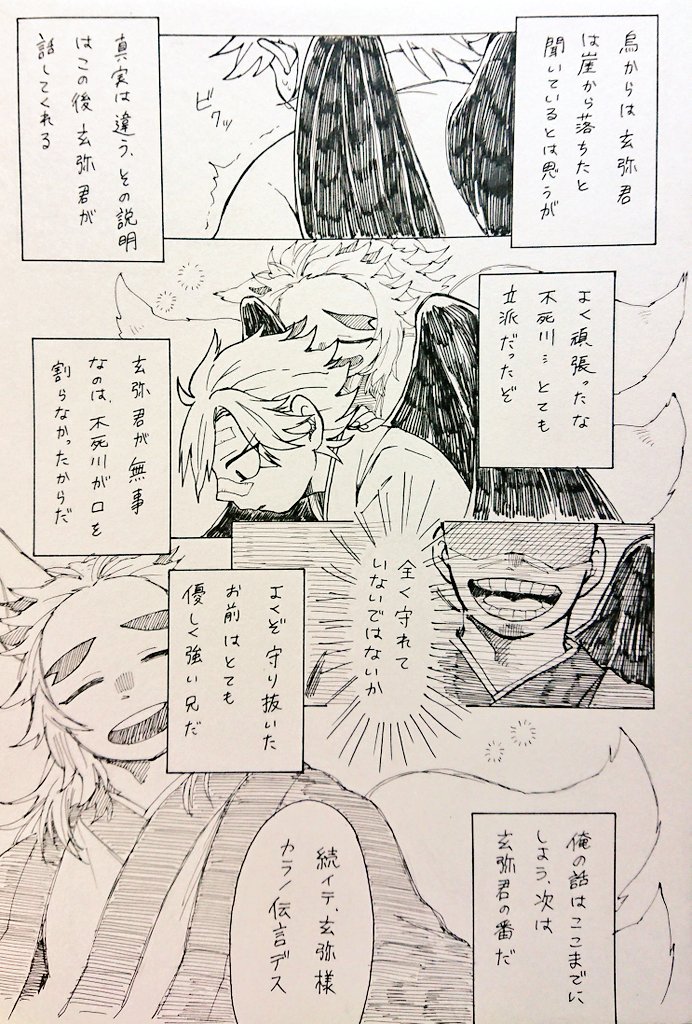 烏からは玄弥君
は崖から落ちたと
聞いているとは思うが
ビクッ
真実は違う、その説明
はこの後玄弥君が
話してくれる
よく頑張ったな
不死川…とても
立派だったぞ
玄弥君が無事
なのは、不死川が口を
割らなかったからだ
全く守れて
いないではないか
よくぞ守り抜いた
お前はとても
優しく強い兄だ
俺の話はここまでに
しよう、次は
玄弥君の番だ
続イテ、玄弥様
カラノ伝言デス